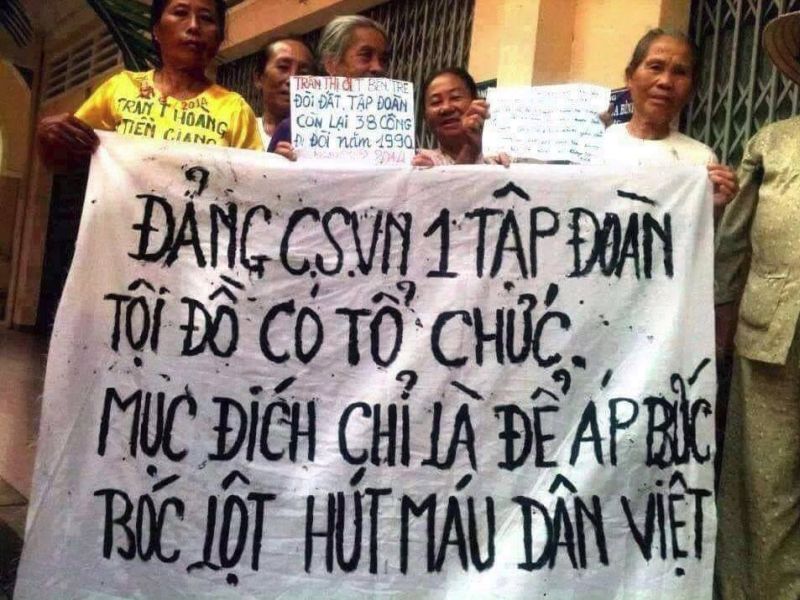 2014
TRẦN T HOÀNG
TIỀN GIANG
TRẦN THỊ ÚT BẾN TRE
ĐÒI ĐẤT. TẬP ĐOÀN
CÒN LẠI 38 CÔNG
ĐI ĐÒI NĂM 1990
2014
ĐẢNG C.S.VN 1 TẬP ĐOÀN
TỘI ĐỒ CÓ TỔ CHỨC.
MỤC ĐÍCH CHỈ LÀ ĐỂ ÁP BỨC
BÓC LỘT HÚT MÁU DÂN VIỆT